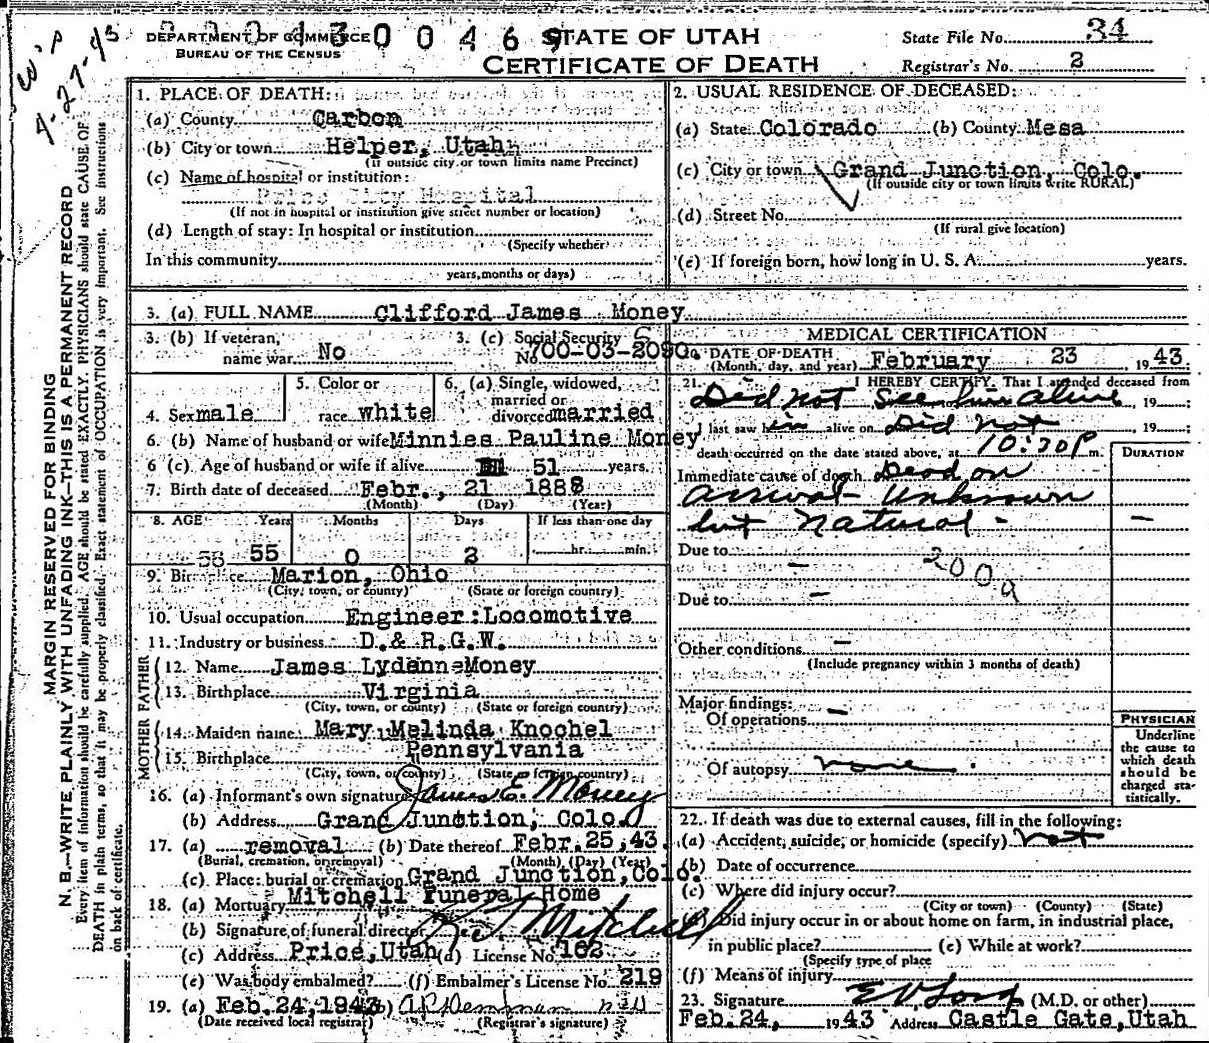 W's
4-27-43
DEPARTMENT OF COMMERCE
BUREAU OF THE CENSUS
STATE OF UTAH
CERTIFICATE OF DEATH
State File No. 34
Registrar's No. 2
MARGIN RESERVED FOR BINDING
N. B.—WRITE PLAINLY, WITH UNFADING INK—THIS IS A PERMANENT RECORD
Every item of information should be carefully supplied. AGE should be stated EXACTLY. PHYSICIANS should state CAUSE OF
DEATH in plain terms, so that it may be properly classified. Exact statement of OCCUPATION is very important. See instructions
on back of certificate.
1. PLACE OF DEATH:
(a) County Carbon
(b) City or town Helper, Utah
(If outside city or town limits name Precinct)
(c) Name of hospital or institution:
Price City Hospital
(If not in hospital or institution give street number or location)
(d) Length of stay: In hospital or institution
(Specify whether
In this community
years, months or days)
2. USUAL RESIDENCE OF DECEASED:
(a) State Colorado (b) County Mesa
(c) City or town Grand Junction, Colo.
(If outside city or town limits write RURAL)
(d) Street No.
(If rural give location)
(e) If foreign born, how long in U. S. A. years.
3. (a) FULL NAME Clifford James Money
3. (b) If veteran,
name war No
3. (c) Social Security
No. 700-03-2090
4. Sex male
5. Color or
race white
6. (a) Single, widowed,
married or
divorced married
6. (b) Name of husband or wife Minnies Pauline Money
6 (c). Age of husband or wife if alive 51 years.
7. Birth date of deceased Febr., 21 1888
(Month) (Day) (Year)
8. AGE Years Months Days If less than one day
55 0 2 hr. min.
9. Birthplace Marion, Ohio
(City, town, or county) (State or foreign country)
10. Usual occupation Engineer:Locomotive
11. Industry or business D.& R.G.W.
FATHER
12. Name James Lydenn Money
13. Birthplace Virginia
(City, town, or county) (State or foreign country)
MOTHER
14. Maiden name Mary Melinda Knochel
15. Birthplace Pennsylvania
(City, town, or county) (State or foreign country)
16. (a) Informant's own signature James E. Money
(b) Address Grand Junction, Colo.
17. (a) removal (b) Date thereof Febr. 25, 43.
(Burial, cremation, or removal) (Month) (Day) (Year)
(c) Place: burial or cremation Grand Junction, Colo.
18. (a) Mortuary Mitchell Funeral Home
(b) Signature of funeral director Mitchell
(c) Address Price, Utah (d) License No. 162
(e) Was body embalmed? (f) Embalmer's License No. 219
19. (a) Feb. 24, 1943 (b)
(Date received local registrar) (Registrar's signature)
MEDICAL CERTIFICATION
20. DATE OF DEATH
(Month, day, and year) February 23 1943.
21. I HEREBY CERTIFY, That I attended deceased from
Did not see him alive, 19
I last saw him alive on Did not, 19
death occurred on the date stated above, at 10:30 P m.
DURATION
Immediate cause of death Dead on
arrival - Unknown
but natural -
Due to -
200a
Due to -
Other conditions -
(Include pregnancy within 3 months of death)
Major findings:
Of operations -
Of autopsy none.
PHYSICIAN
Underline
the cause to
which death
should be
charged sta-
tistically.
22. If death was due to external causes, fill in the following:
(a) Accident, suicide, or homicide (specify) not
(b) Date of occurrence
(c) Where did injury occur?
(City or town) (County) (State)
(d) Did injury occur in or about home on farm, in industrial place,
in public place? (e) While at work?
(Specify type of place
(f) Means of injury
23. Signature (M.D. or other)
Feb. 24, 1943 Address Castle Gate, Utah